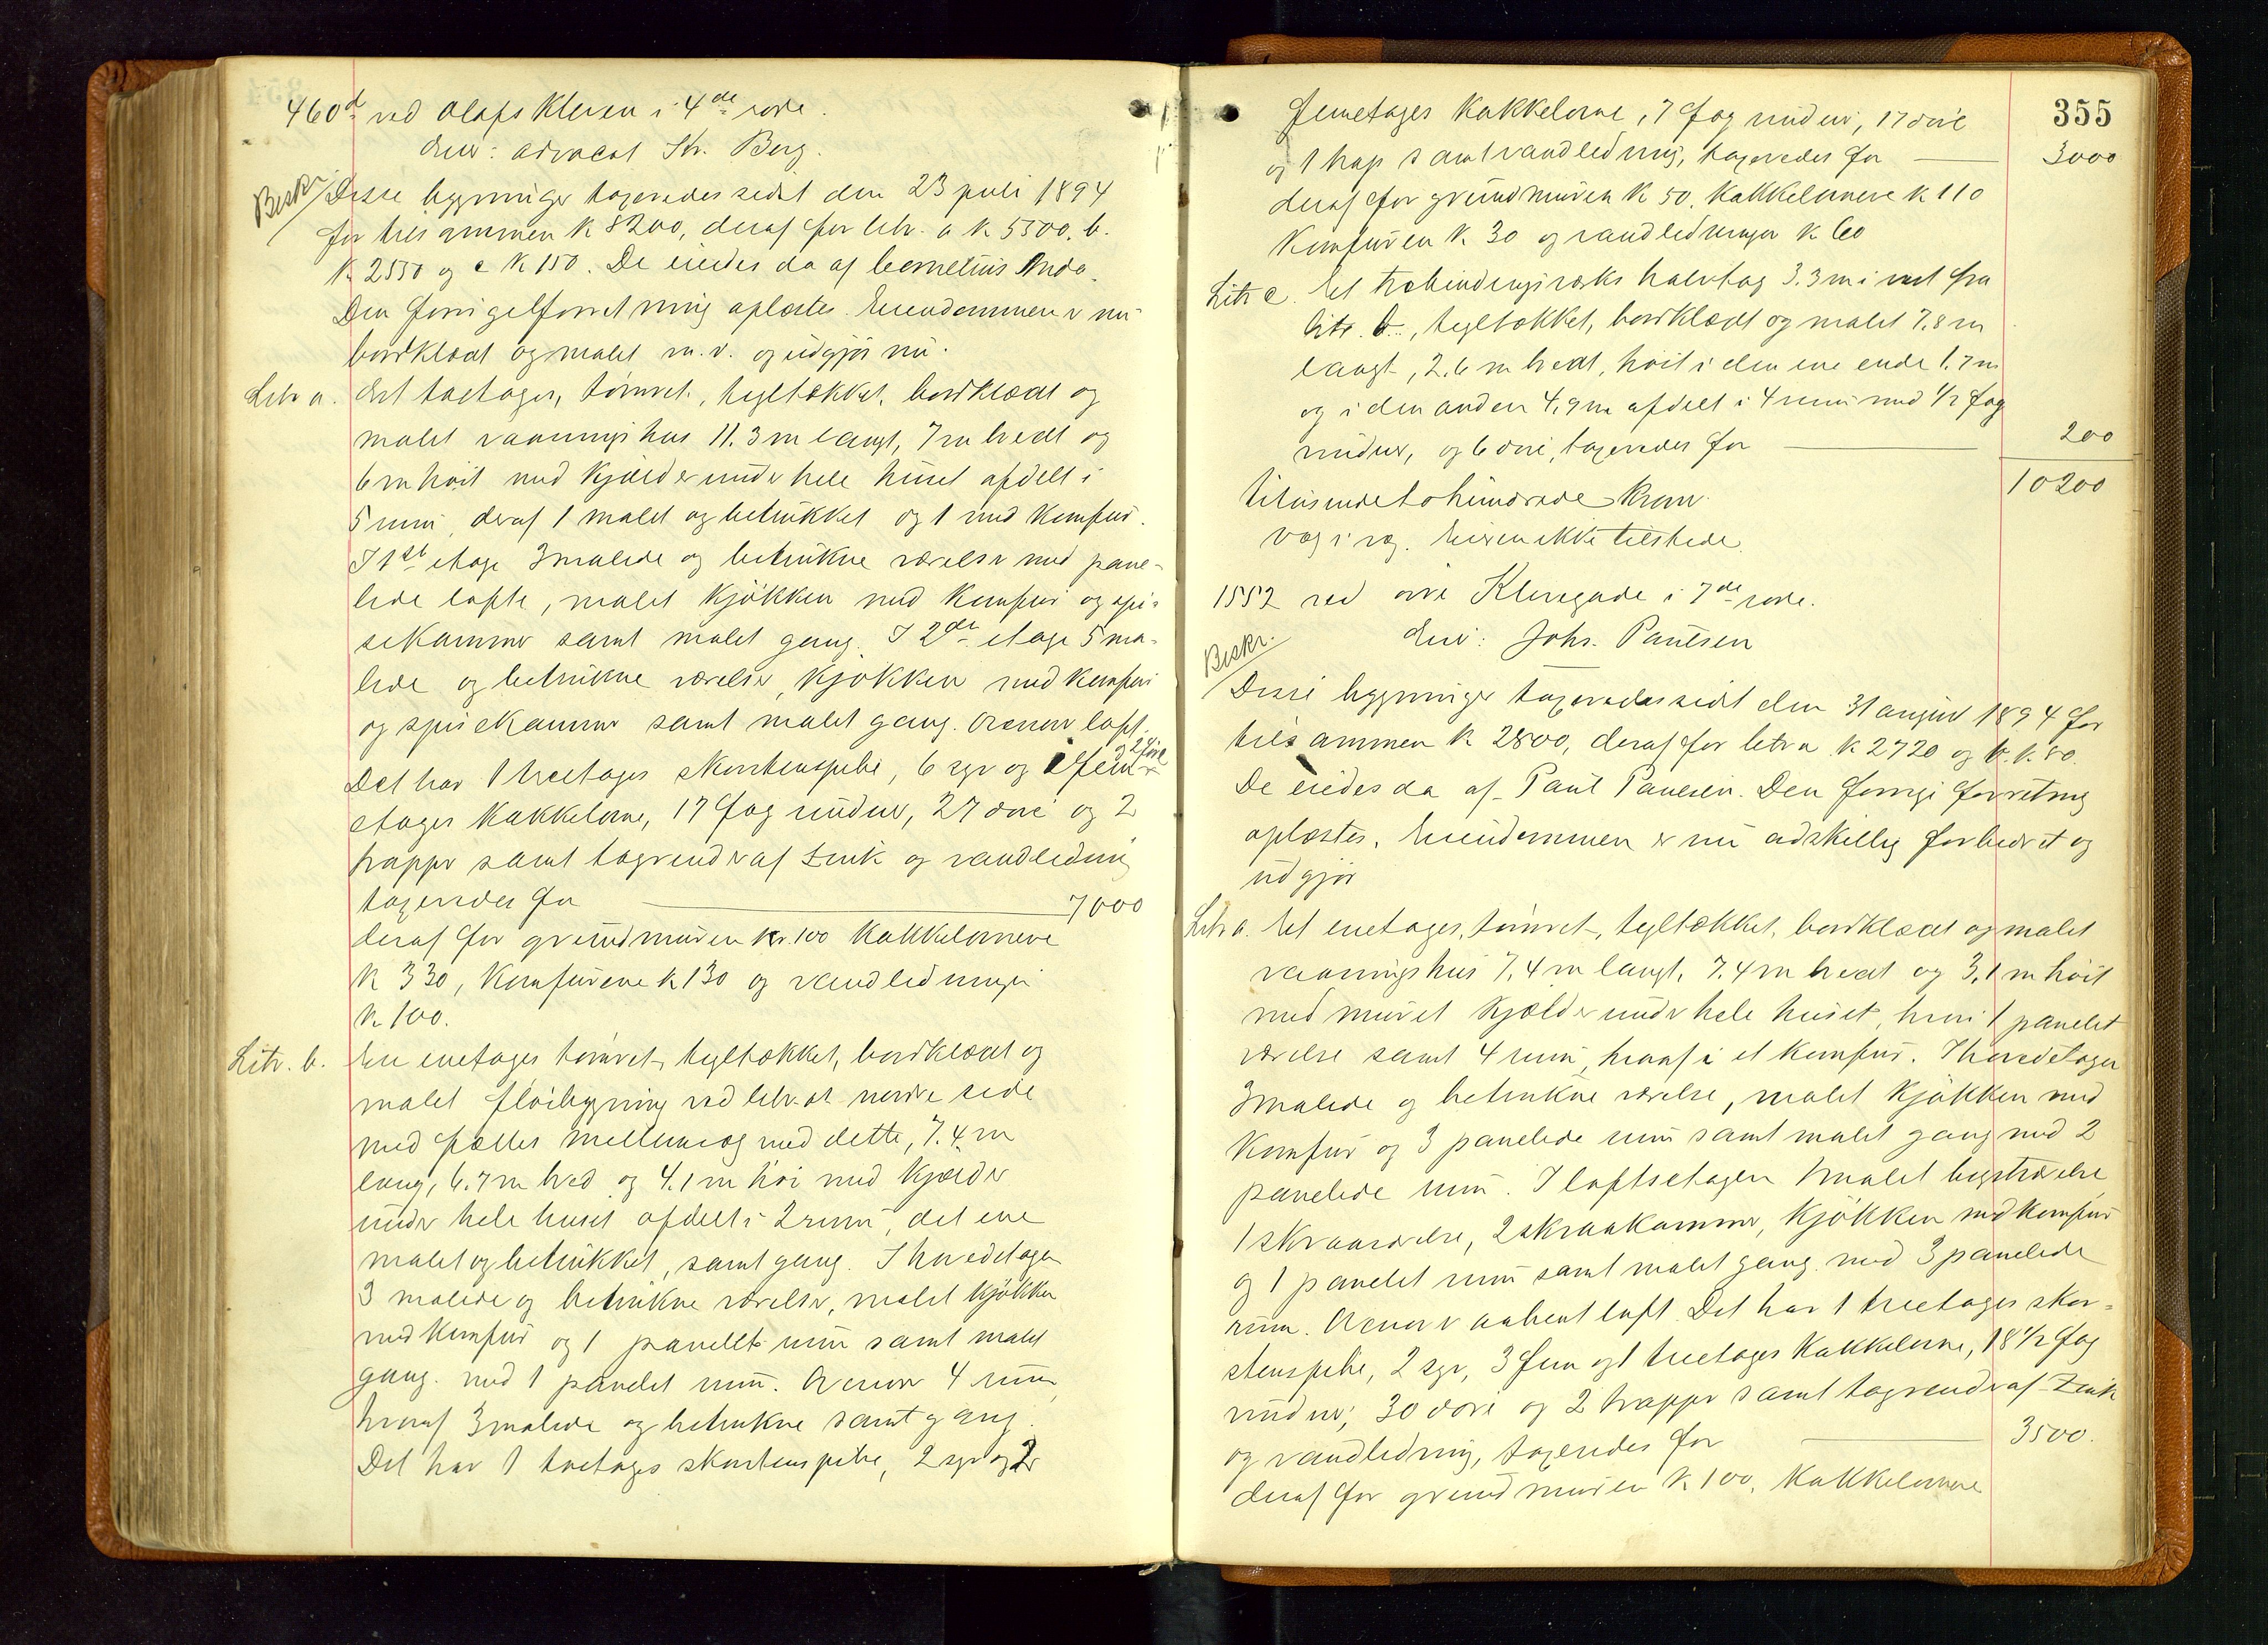 460d ved Olafs Kleven i 4de rode.
Eier: advocat Str. Berg.
Beskr. Disse bygninger taxeredes sidst den 23 juli 1894
for tilsammen k 8200, deraf for litr. a k 5500, b.
k 2550 og c k 150. De eiedes da af Cornelius Anda.
Den forrige forretning oplæstes. Eiendommen er nu
bordklædt og malet m.v. og udgjør nu:
Litr a. Et toetages, tømret, tegltækket, bordklædt og
malet vaaningshus 11.3 m langt, 7 m bredt og
6 m høit med kjælder under hele huset afdelt i
5 rum, deraf 1 malet og betrukket og 1 med komfur.
I 1ste etage 3 malede og betrukne værelser med pane-
lede lofte, malet kjøkken med komfur og spi-
sekammer samt malet gang. I 2den etage 5 ma-
lede og betrukne værelser, kjøkken med komfur
og spisekammer samt malet gang. Ovenover loft.
Det har 1 treetages skorstenspibe, 6 syv og 2 fem
etages kakkelovne, 17 fag vinduer, 27 døre og 2
trapper samt tagrender af zink og vandledning
taxeredes for 7000
deraf for grundmuren kr. 100 kakkelovnene
k 330, komfurene k 130 og vandledningen
k 100.
Litr. b. En enetages tømret, tegltækket, bordklædt og
malet fløibygning ved litr. a's nordre side
med fælles mellemvæg med dette, 7.4 m
lang, 6.7 m bred og 4.1 m høi med kjælder
under hele huset afdelt i 2 rum, det ene
malet og betrukket, samt gang. I hovedetagen
3 malede og betrukne værelser, malet kjøkken
med komfur og 1 panelet rum samt malet
gang med 1 panelet rum. Ovenover 4 rum,
hvoraf 3 malede og betrukne samt gang.
Det har 1 toetages skorstenspibe, 2 syv og 2
femetages kakkelovne, 7 fag vinduer, 17 døre
355
og 1 trap samt vandledning, taxeredes for 3000
deraf for grundmuren k 50, kakkelovnene k 110
komfuren k 30 og vandledningen k 60
Litr c. Et træbindingsværks halvtag 3.3 m i vest fra
litr. b., tegltækket, bordklædt og malet 7.8 m
langt, 2.6 m bredt, høit i den ene ende 1.7 m
og i den anden 4.9 m afdelt i 4 rum med 1/2 fag
vinduer, og 6 døre, taxeredes for 200
10200
titusindetohundrede kroner
Væg i væg. Eieren ikke tilstede.
1552 ved øvre Klevegade i 7de rode.
Eier: Johs. Paulsen
Beskr. Disse bygninger taxeredes sidst den 31 august 1894 for
tilsammen k 2800, deraf for litr a k 2720 og b. k. 80.
De eiedes da af Paul Paulsen. Den forrige forretning
oplæstes. Eiendommen er nu adskillig forbedret og
udgjør
Litr a. Et enetages, tømret, tegltækket, bordklædt og malet
vaaningshus 7,4 m langt, 7.4 m bredt og 3,1 m høit
med muret kjælder under hele huset, hvori 1 panelet
værelse samt 4 rum, hvoraf i et komfur. I hovedetagen
3 malede og betrukne værelse, malet kjøkken med
komfur og 3 panelede rum samt malet gang med 2
panelede rum. I loftsetagen 1 malet kvistværelse,
1 skraaværelse, 2 skraakammer, kjøkken med komfur
og 1 panelet rum samt malet gang med 3 panelede
rum. Ovenover aabent loft. Det har 1 treetages skor-
stenspibe, 2 syv, 3 fem og 1 treetages kakkelovne, 18 1/2 fag
vinduer, 30 døre og 2 trapper samt tagrender af zink
og vandledning, taxeredes for 3500.
deraf for grundmuren k 100, kakkelovnene